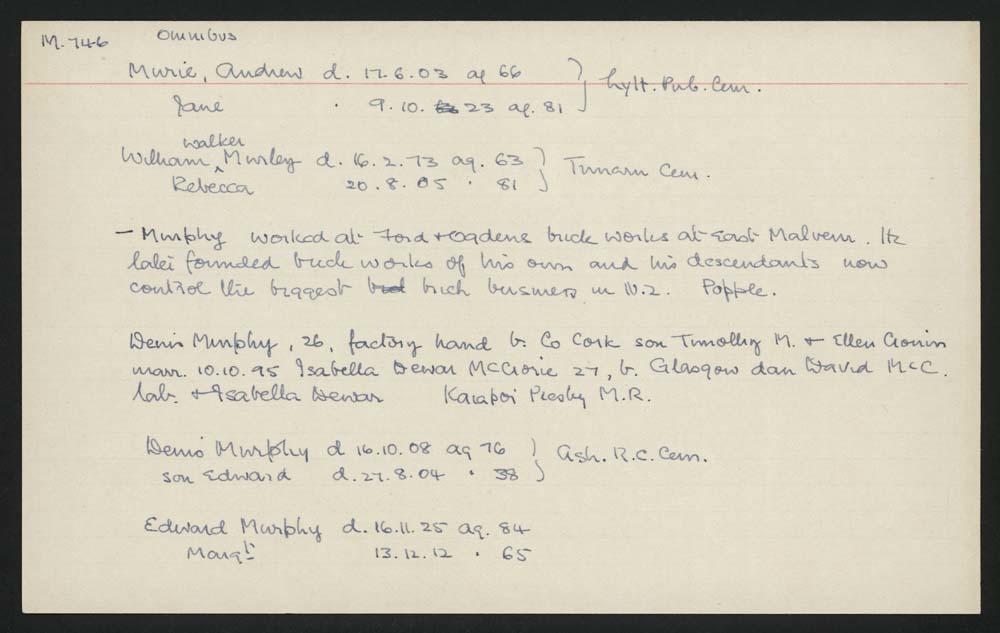 M.746 Omnibus
Murie, Andrew d. 17.6.03 ag 66
Jane . 9.10. 23 ag. 81 } Lytt. Pub. Cem.
walker
William Murley d. 16.2.73 ag. 63
Rebecca 20.8.05 . 81 } Timaru Cem.
- Murphy worked at Ford + Ogdens brick works at East Malvern. He
later founded brick works of his own and his descendants now
control the biggest brick business in N.Z. Popple.
Denis Murphy, 26, factory hand b. Co Cork son Timothy M. + Ellen Cronin
marr. 10.10.95 Isabella Dewar McCrorie 27, b. Glasgow dau David McC.
lab. + Isabella Dewar Kaiapoi Presby M.R.
Denis Murphy d 16.10.08 ag 76
son Edward d. 27.8.04 . 38 } Ash. R.C. Cem.
Edward Murphy d. 16.11.25 ag. 84
Margt 13.12.12 . 65